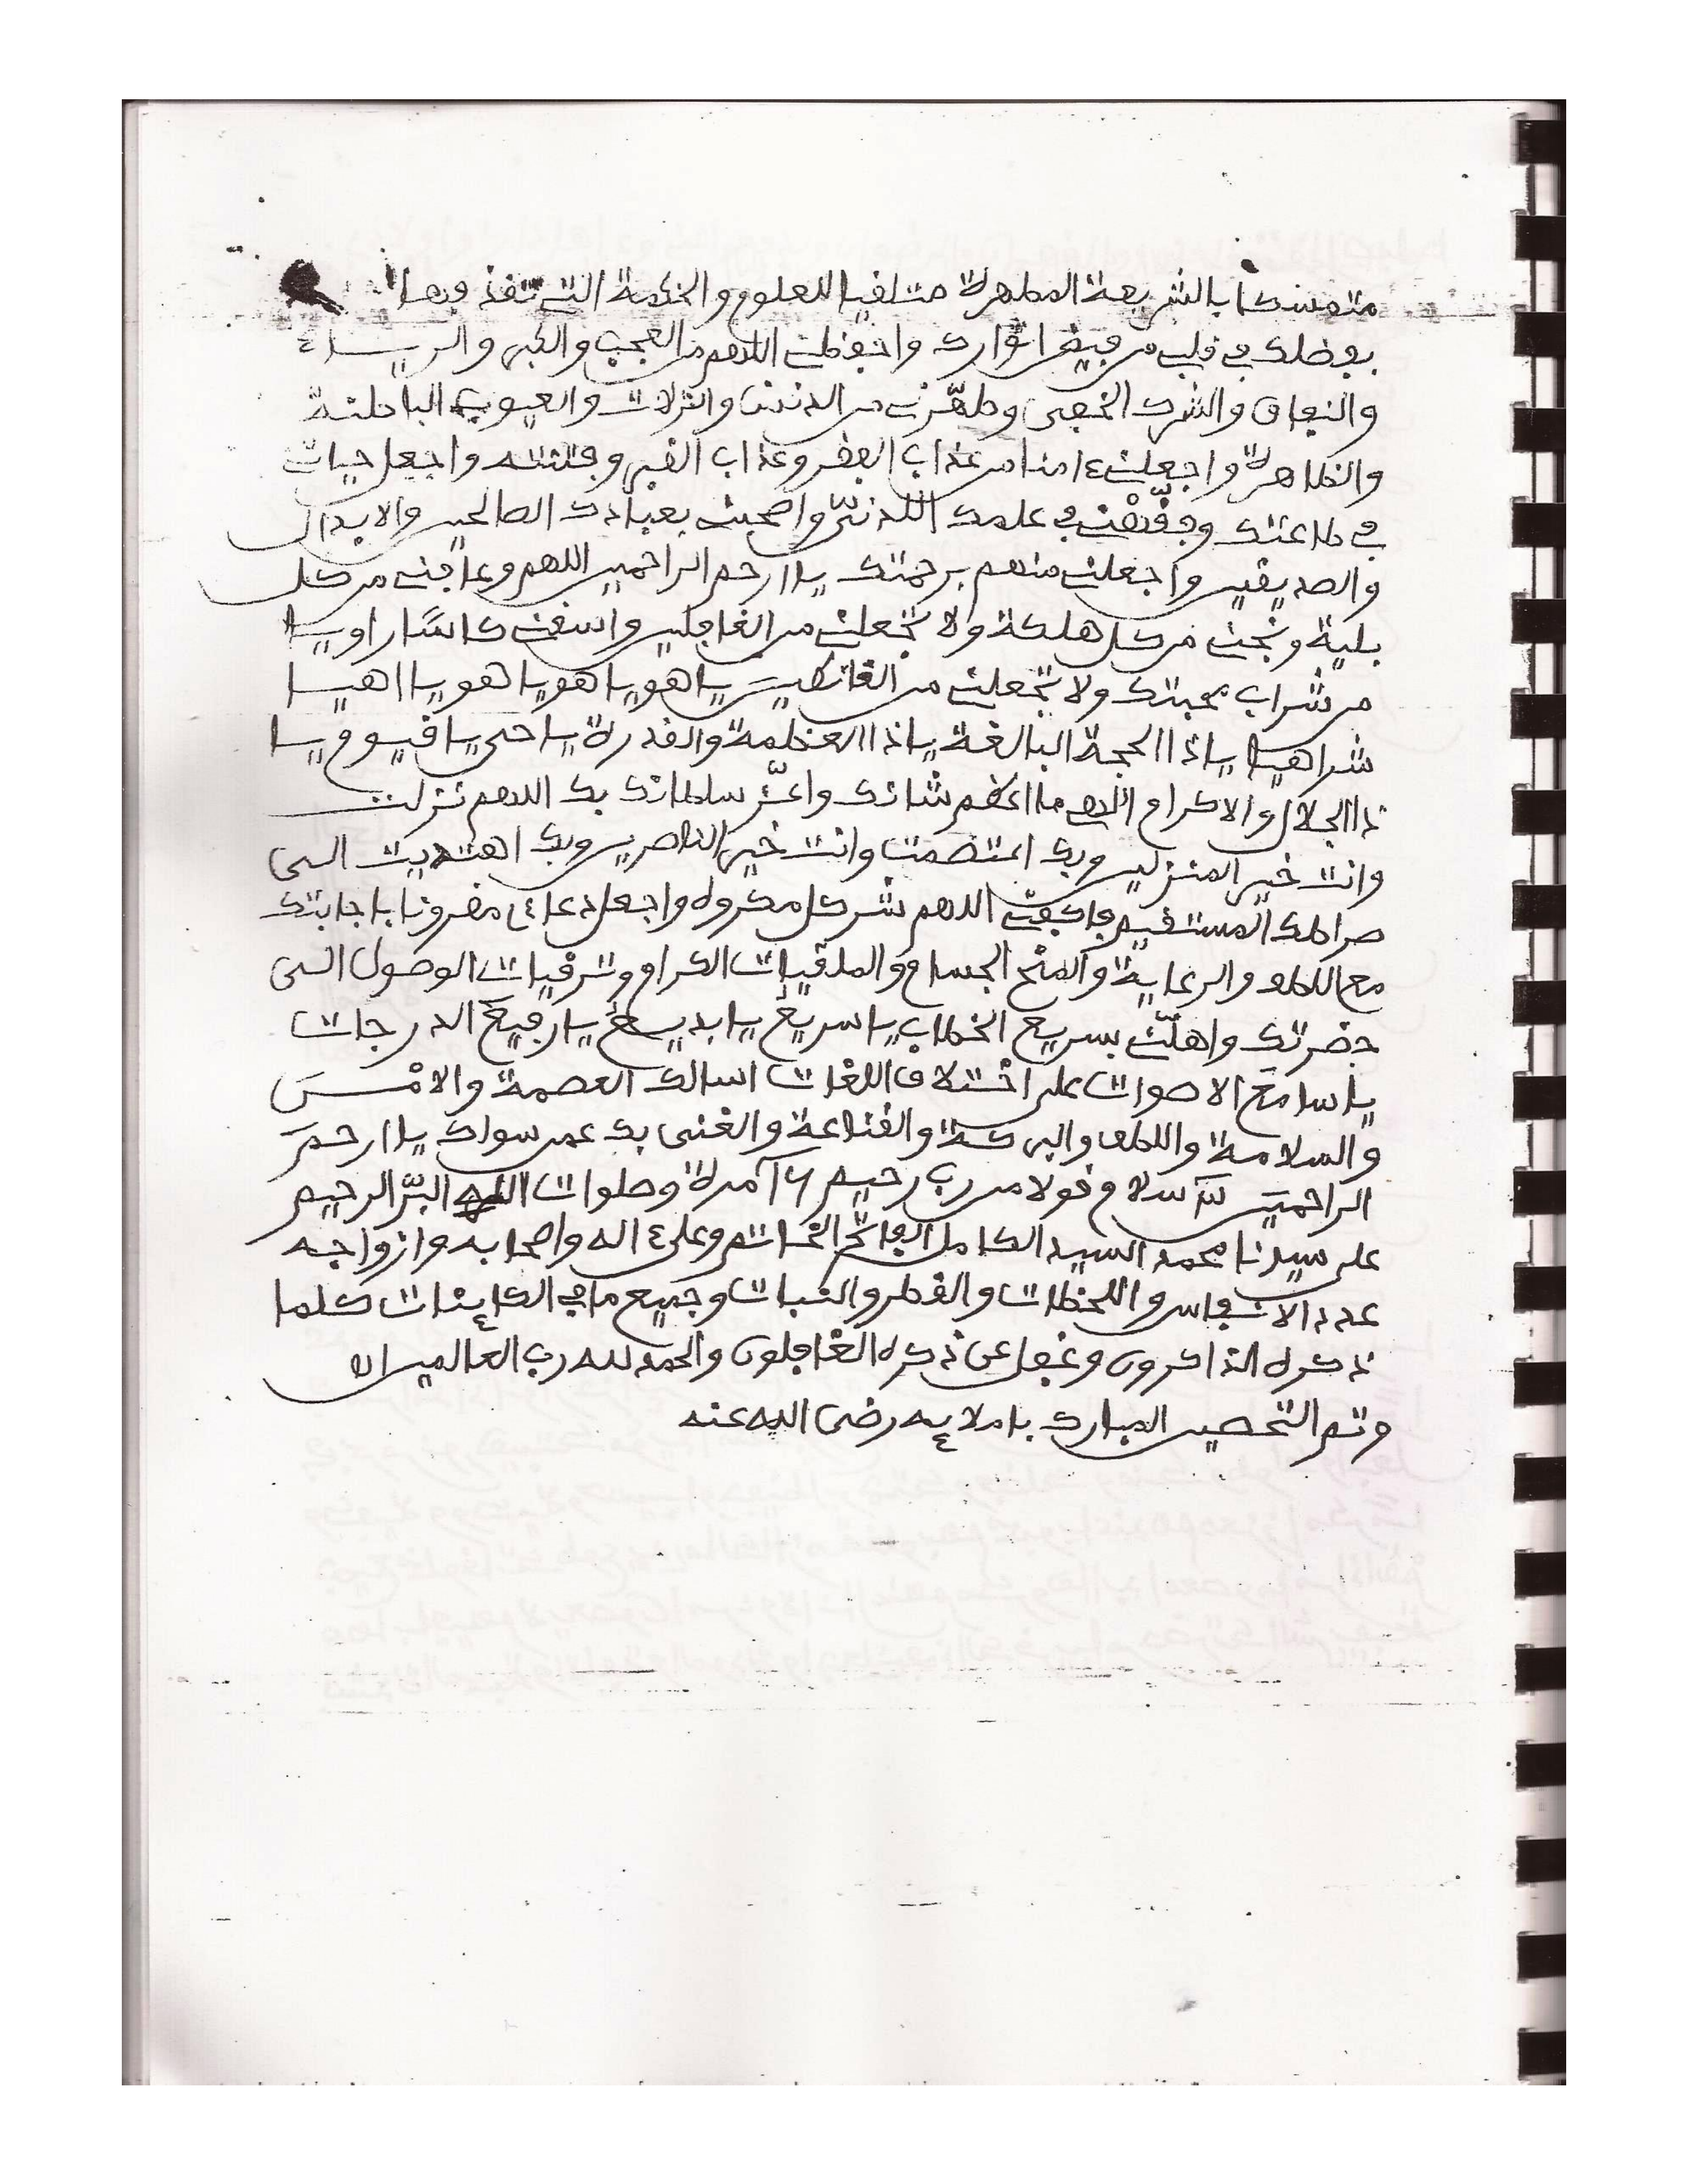 متمسكا بالشريعة المطهرة متلقيا للعلوم والحكمة التي تقذفها
بفضلك في قلبي من فيض انوارك واحفظني اللهم من العجب والكبر والرياء
والنفاق والشرك الخفى وطهّرني من الدنس والزلات والعيوب الباطنة
والظاهرة واجعلني ءامنا من عذاب الفقر وعذاب القبر وفتنته واجعل حياتي
في طاعتك وفقّهْني في علمك اللدنيّ واصحبني بعبادك الصالحين والابدال
والصديقين واجعلني منهم برحمتك يا ارحم الراحمين اللهم وعافني من كل
بلية ونجني من كل هلكة ولا تجعلني من الغافلين واسقني كاسًا راويا
من شراب محبتك ولا تجعلني من القانطين يا هو يا هو يا هو يا اهيا
شراهيا يا ذا الحجة البالغة يا ذا العظمة والقدرة يا حي يا قيوم يا
ذا الجلال والاكرام اللهم ما اعظم شانك واعزّ سلطانك بك اللهم نزلت
وانت خير المنزلين وبك اعتصمت وانت خير الناصرين وبك اهتديت الى
صراطك المستقيم فاكفني اللهم شر كل مكروه واجعل دعاءي مقرونا باجابتك
مع اللطف والرعاية والمنح الجسام والملقيات الكرام وترقيات الوصول الى
حضرتك واهلني بسريع الخطاب يا سريعُ يا بديعُ يا رفيعَ الدرجات
يا سامعَ الاصوات على اخْتلاف اللغات اسالك العصمة والامْن
والسلامة واللطف والبركة والقناعة والغنى بك عمن سواك يا ارحمَ
الراحمين سلام قولا من رب رحيم مرة وصلوات الله البرّ الرحيم
على سيدنا محمد السيد الكامل الفاتح الخاتم وعلى ءاله واصحابه وازواجه
عدد الانفاس واللحظات والقطر والنبات وجميع ما في الكاينات كلما
ذكره الذاكرون وغفل عن ذكره الغافلون والحمد لله رب العالمين
وتم التحصين المبارك باملايه رضى الله عنه